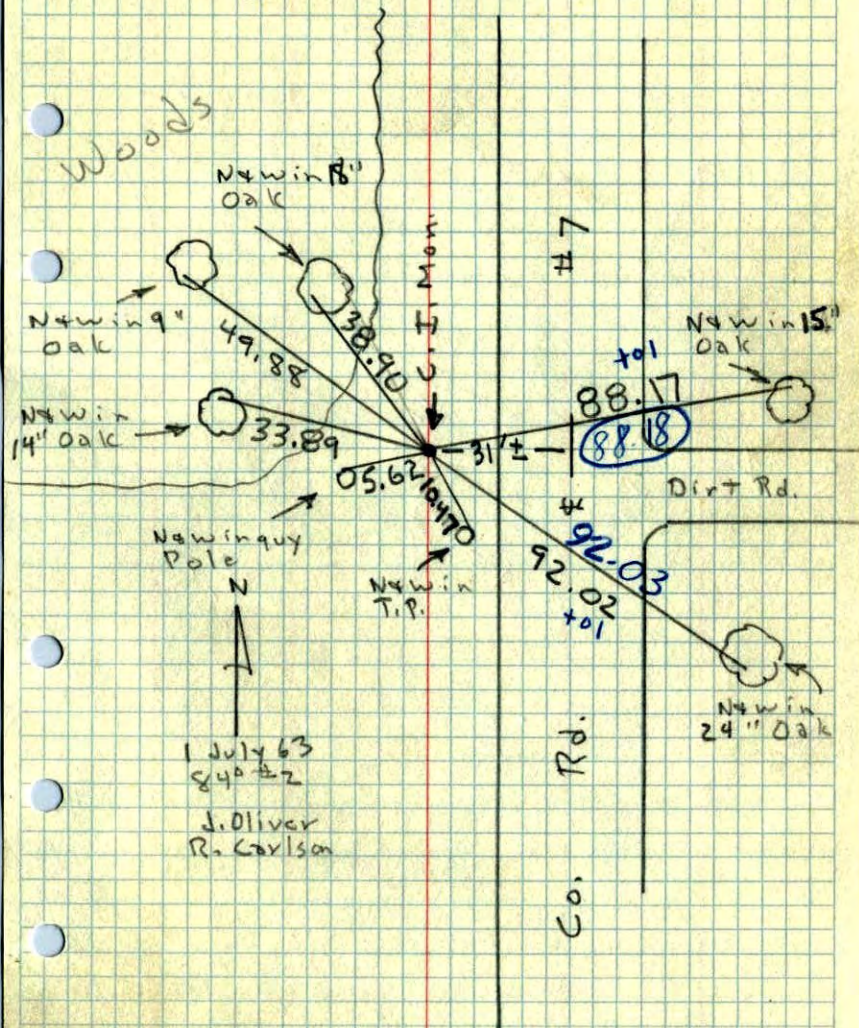 Woods
N&W in 18"
Oak
C.I. Mon.
#7
N&W in 9"
Oak
49.88
38.90
N&W in 15"
Oak
+01
88.17
88.18
N&W in
14" Oak
33.89
31'±
05.62
10.470
Dirt Rd.
N&W in guy
Pole
N&W in
T.P.
92.03
92.02
+01
N
N&W in
24" Oak
1 July 63
84°
J. Oliver
R. Carlson
Co. Rd.